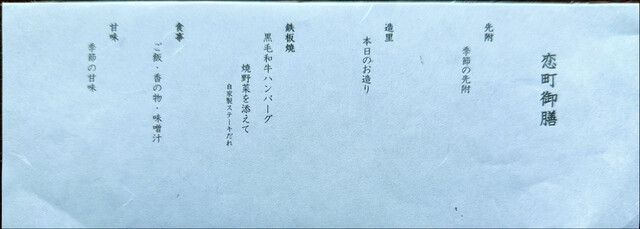 恋町御膳
先附
季節の先附
造里
本日のお造り
鉄板焼
黒毛和牛ハンバーグ
焼野菜を添えて
自家製ステーキだれ
食事
ご飯・香の物・味噌汁
甘味
季節の甘味